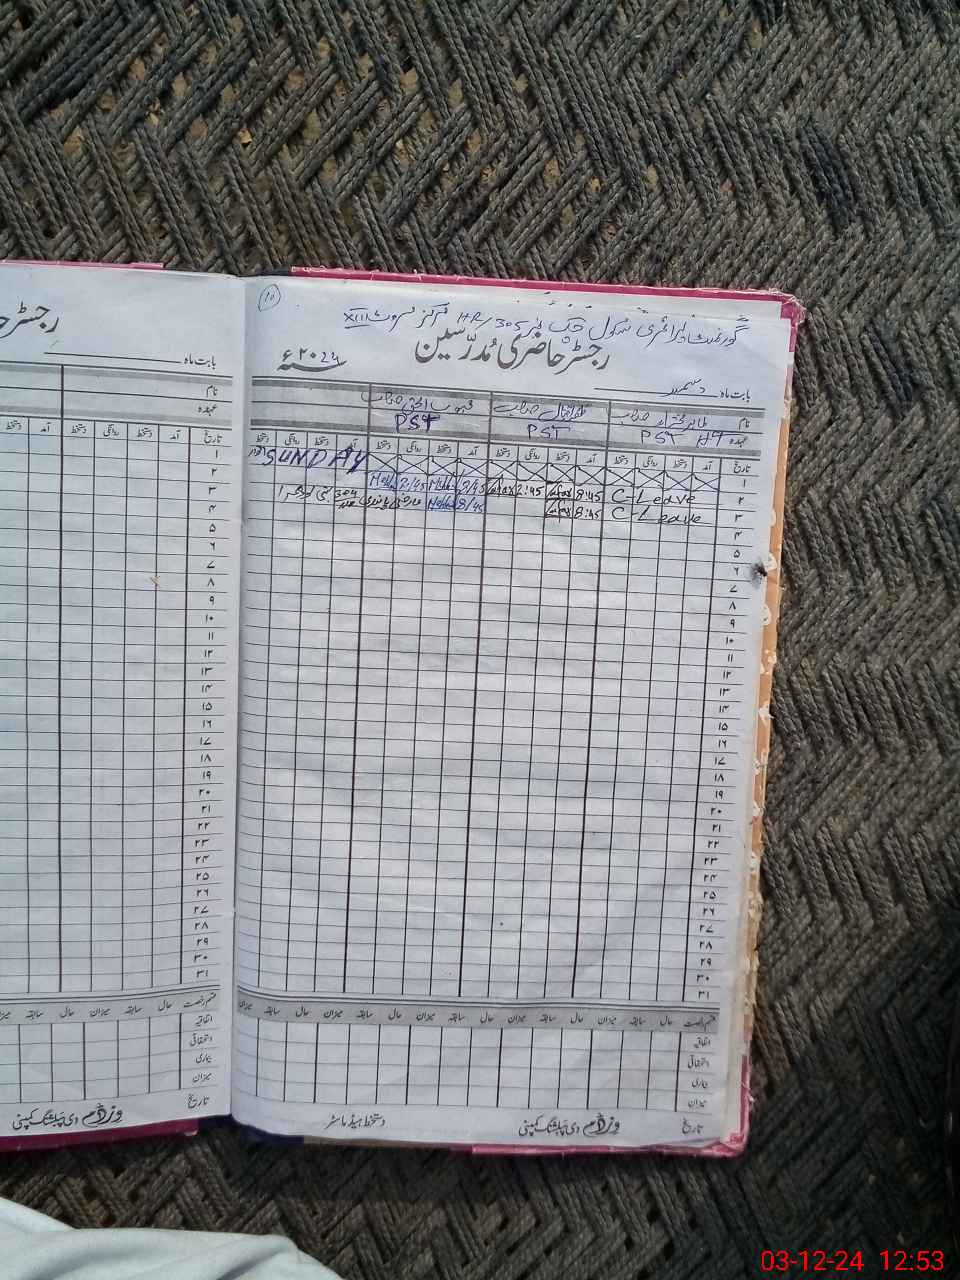 10
گورنمنٹ پرائمری سکول چک نمبر 305/HR مرکز مروٹ XIII
رجسٹر حاضری مُدرّسین
سنہ ۲۰24ء
بابت ماہ دسمبر
نام طاہر مختار صاحب ظفر اقبال صاحب محبوب الحق صاحب
عہدہ PST HT PST PST
تاریخ آمد دستخط روانگی دستخط آمد دستخط روانگی دستخط آمد دستخط روانگی دستخط آمد دستخط روانگی دستخط
۱ SUNDAY اتوار
۲ C-Leave 8:45 2:45 8/45 2/45
۳ C-Leave 8:45 8/45
۴
۵
۶
۷
۸
۹
۱۰
۱۱
۱۲
۱۳
۱۴
۱۵
۱۶
۱۷
۱۸
۱۹
۲۰
۲۱
۲۲
۲۳
۲۴
۲۵
۲۶
۲۷
۲۸
۲۹
۳۰
۳۱
قسم رخصت حال سابقہ میزان حال سابقہ میزان حال سابقہ میزان حال سابقہ میزان
اتفاقیہ
استحقاقی
بیماری
میزان
تاریخ دستخط ہیڈ ماسٹر
دی پبلشنگ کمپنی
بابت ماہ
نام
عہدہ
تاریخ آمد دستخط روانگی دستخط آمد دستخط
۱
۲
۳
۴
۵
۶
۷
۸
۹
۱۰
۱۱
۱۲
۱۳
۱۴
۱۵
۱۶
۱۷
۱۸
۱۹
۲۰
۲۱
۲۲
۲۳
۲۴
۲۵
۲۶
۲۷
۲۸
۲۹
۳۰
۳۱
قسم رخصت حال سابقہ میزان حال سابقہ میزان
اتفاقیہ
استحقاقی
بیماری
میزان
تاریخ
دی پبلشنگ کمپنی
03-12-24 12:53